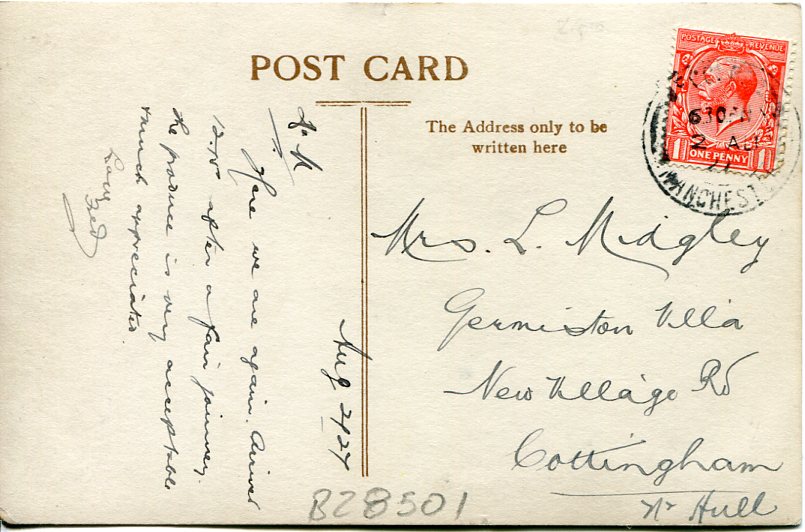 POST CARD
The Address only to be
written here
POSTAGE REVENUE
ONE PENNY
1 1
MANCHESTER
Aug 2/24
Here we are again. Arrived
after a fair journey
the produce is very acceptable
& much appreciated
Love
Mrs. L. Midgley
Germiston Villa
New Village Rd
Cottingham
Nr Hull
B28501